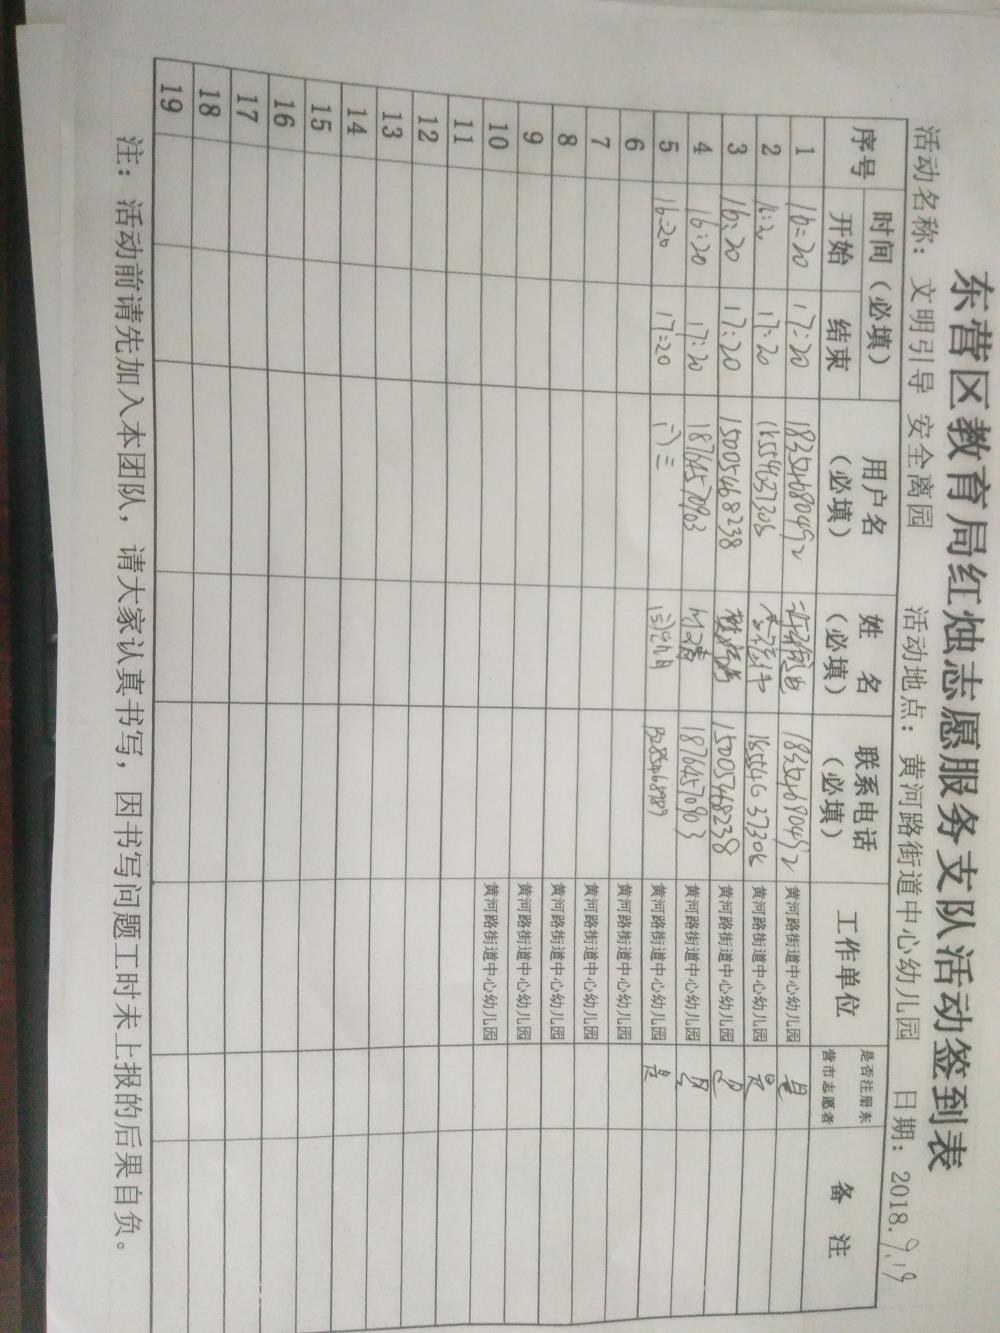 东营区教育局红烛志愿服务支队活动签到表
活动名称：文明引导 安全离园 活动地点：黄河路街道中心幼儿园 日期：2018.9.19
序号 时间（必填） 用户名（必填） 姓名（必填） 联系电话（必填） 工作单位 是否注册东营市志愿者 备注
开始 结束
1 16:20 17:20 黄河路街道中心幼儿园 是
2 16:20 17:20 黄河路街道中心幼儿园 是
3 16:20 17:20 15005468238 15005468238 黄河路街道中心幼儿园 是
4 16:20 17:20 18764570903 18764570903 黄河路街道中心幼儿园 是
5 16:20 17:20 黄河路街道中心幼儿园 是
6 黄河路街道中心幼儿园
7 黄河路街道中心幼儿园
8 黄河路街道中心幼儿园
9 黄河路街道中心幼儿园
10 黄河路街道中心幼儿园
11
12
13
14
15
16
17
18
19
注：活动前请先加入本团队，请大家认真书写，因书写问题工时未上报的后果自负。